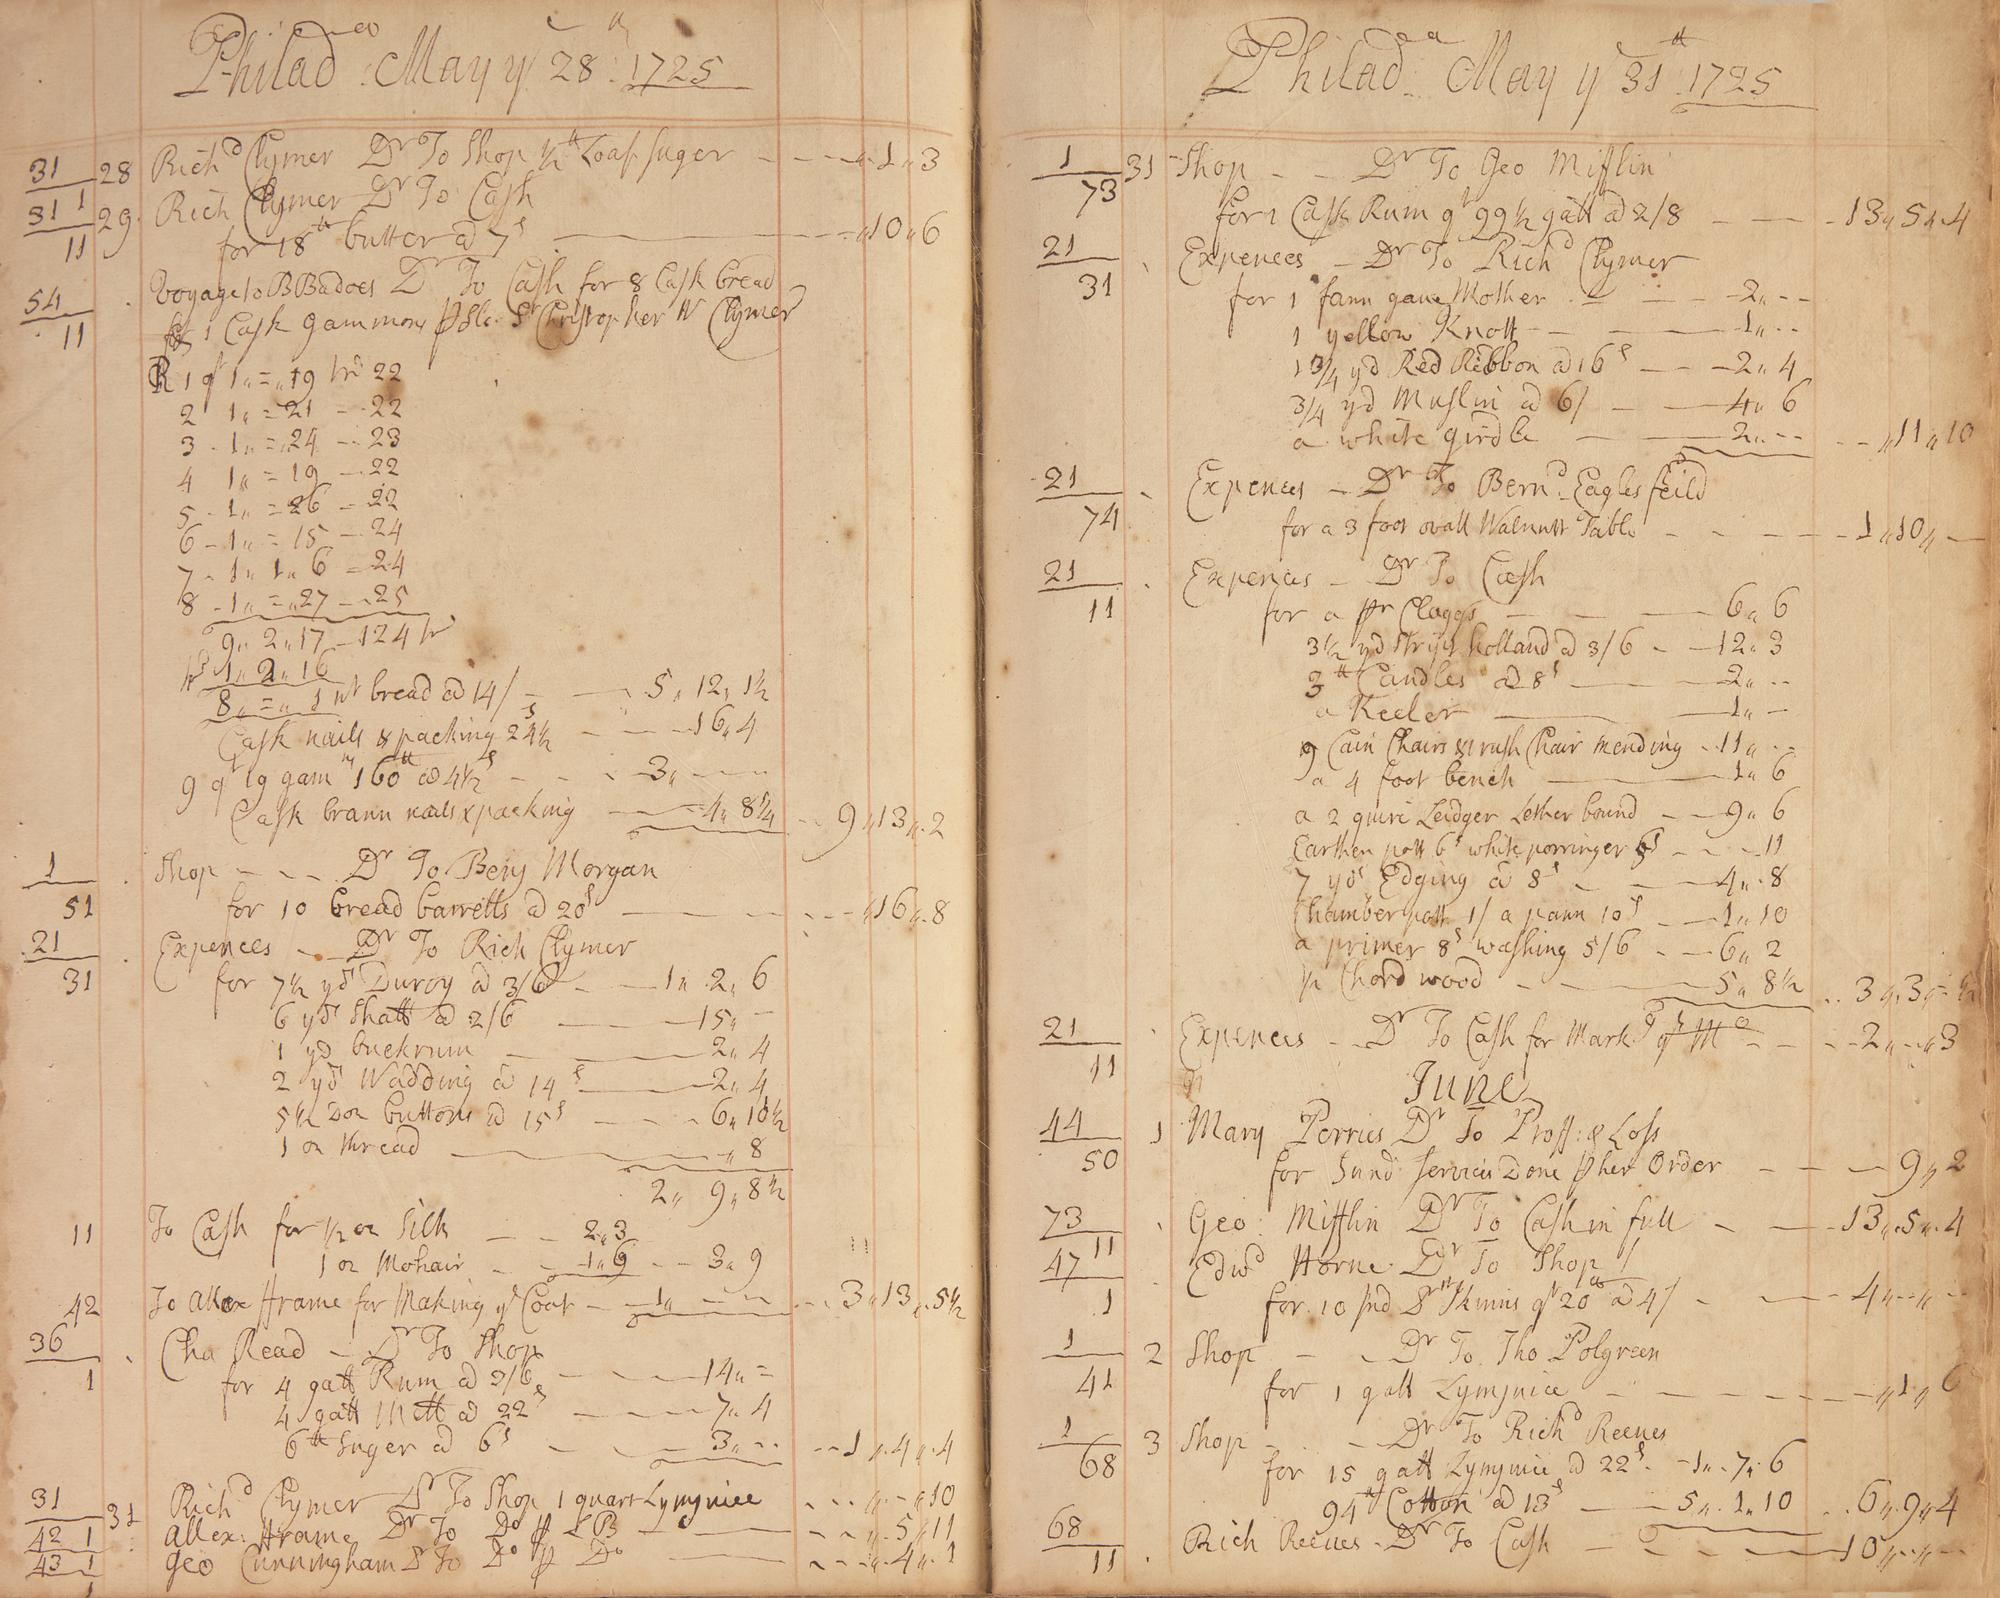 Philad. May ye 28th 1725
31 28 Richd Clymer Dr To Shop 1/2 tt Loaf Suger - - - - " 1 " 3
31 1 29 Rich Clymer Dr To Cash
11 for 18tt butter @ 7s - " 10 " 6
54 Voyage to BBadoes Dr To Cash for 8 Cask bread
11 1 Cask Gammons p Slo. St Christopher W Clymer
1 qt 1 " = " 19 tre 22
2 1 " = 21 - 22
3 - 1 " = " 24 - 23
4 1 " = 19 - 22
5 - 1 " = 26 - 22
6 - 1 " = 15 - 24
7 - 1 " 1 " 6 - 24
8 - 1 " = " 27 - 25
9 " 2 " 17 - 124 tr
1 " 2 " 16
8 " = " 1 nt bread @ 14/ - - 5 " 12 " 1 1/2
Cask nails & packing 2s 4 1/2 - - - 16 " 4
9 qt 19 gamms 160tt @ 4 1/2s - - - 3 " - - -
Cask brann nails & packing - - 4 " 8 1/4 - - 9 " 13 " 2
1 Shop - - - Dr To Benj Morgan
51 for 10 bread barrells @ 20s - - - - " 16 " 8
21 Expences - - Dr To Rich Clymer
31 for 7 1/2 yds Duroy @ 3/6 - - 1 " 2 " 6
6 yds Shatt @ 2/6 - - 15 " -
1 yd buckrum - - 2 " 4
2 yds Wadding @ 14s - 2 " 4
5 1/2 Doz buttons @ 15s - - - 6 " 10 1/2
1 oz thread - " 8
2 " 9 " 8 1/2
11 To Cash for 1/2 oz Silk - - 2 " 3
1 oz Mohair - - 1 " 6 - - 3 " 9
42 To Allex Frame for Making ye Coat - 1 " - - - - 3 " 13 " 5 1/2
36 Cha Read - Dr To Shop
1 for 4 gall Rum @ 3/6 - - 14 " =
4 gall Mell @ 22s - - 7 " 4
6tt Suger @ 6s - - - 3 " - - - - 1 " 4 " 4
31 31 Richd Clymer Dr To Shop 1 quart Lymjuice - - - " - " 10
42 1 Allex: Frame Dr To Do p LB - - - " 5 " 11
43 1 Geo Cunningham D To Do p Do - - - " 4 " 1
1
Philada. May ye 31th 1725
1 31 Shop - - Dr To Geo Mifflin
73 for 1 Cask Rum qt 99 1/2 gall @ 2/8 - - - 13 " 5 " 4
21 Expences - Dr To Richd Clymer
31 for 1 fann gave Mother - - - 2 " - -
1 yellow Knott - - 1 " - -
1 3/4 yd Red Ribbon @ 16s - - - 2 " 4
3/4 yd Muslin @ 6/ - - 4 " 6
a white girdle - - 2 " - - - - " 11 " 10
21 Expences - Dr To Bernd Eaglesfeild
74 for a 3 foot ovall Walnutt Table - - - - - 1 " 10 " -
21 Expences - Dr To Cash
11 for a pr Cloggs - - - 6 " 6
3 1/2 yd Stript holland @ 3/6 - - 12 " 3
3tt Candles @ 8s - - 2 " - -
a Keeler - - 1 " -
9 Cain Chairs & 1 rush Chair mending - 11 " - -
a 4 foot bench - 1 " 6
a 2 quire Leidger Lether bound - - 9 " 6
Earthen pott 6s white porringer 5s - - - 11
7 yds Edging @ 8s - - 4 " 8
Chamber pott 1/ a pann 10s - - 1 " 10
a primer 8s washing 5/6 - - 6 " 2
1/2 Chord wood - - 5 " 8 1/2 - - 3 " 3 " = 1/2
21 Expences - Dr To Cash for Mark - - - 2 " - " 3
11
June
44 1 Mary Perries Dr To Proff: & Loss
50 for Sund Services Done p her Order - - - 9 " 2
73 Geo: Mifflin Dr To Cash in full - - 13 " 5 " 4
11
47 Edwd Horne Dr To Shop
1 for 10 Ind Dr Skinns qt 20tt @ 4/ - - - 4 " - " -
1 2 Shop - - Dr To Tho Polgreen
41 for 1 gall Lymjuice - - - - - - " 1 " 6
1 3 Shop - - Dr To Richd Reeves
68 for 15 gall Lymjuice @ 22s - 1 " 7 " 6
94tt Cotton @ 13s - 5 " 1 " 10 - - 6 " 9 " 4
68 Rich Reeves - Dr To Cash - - - - 10 " - " -
11